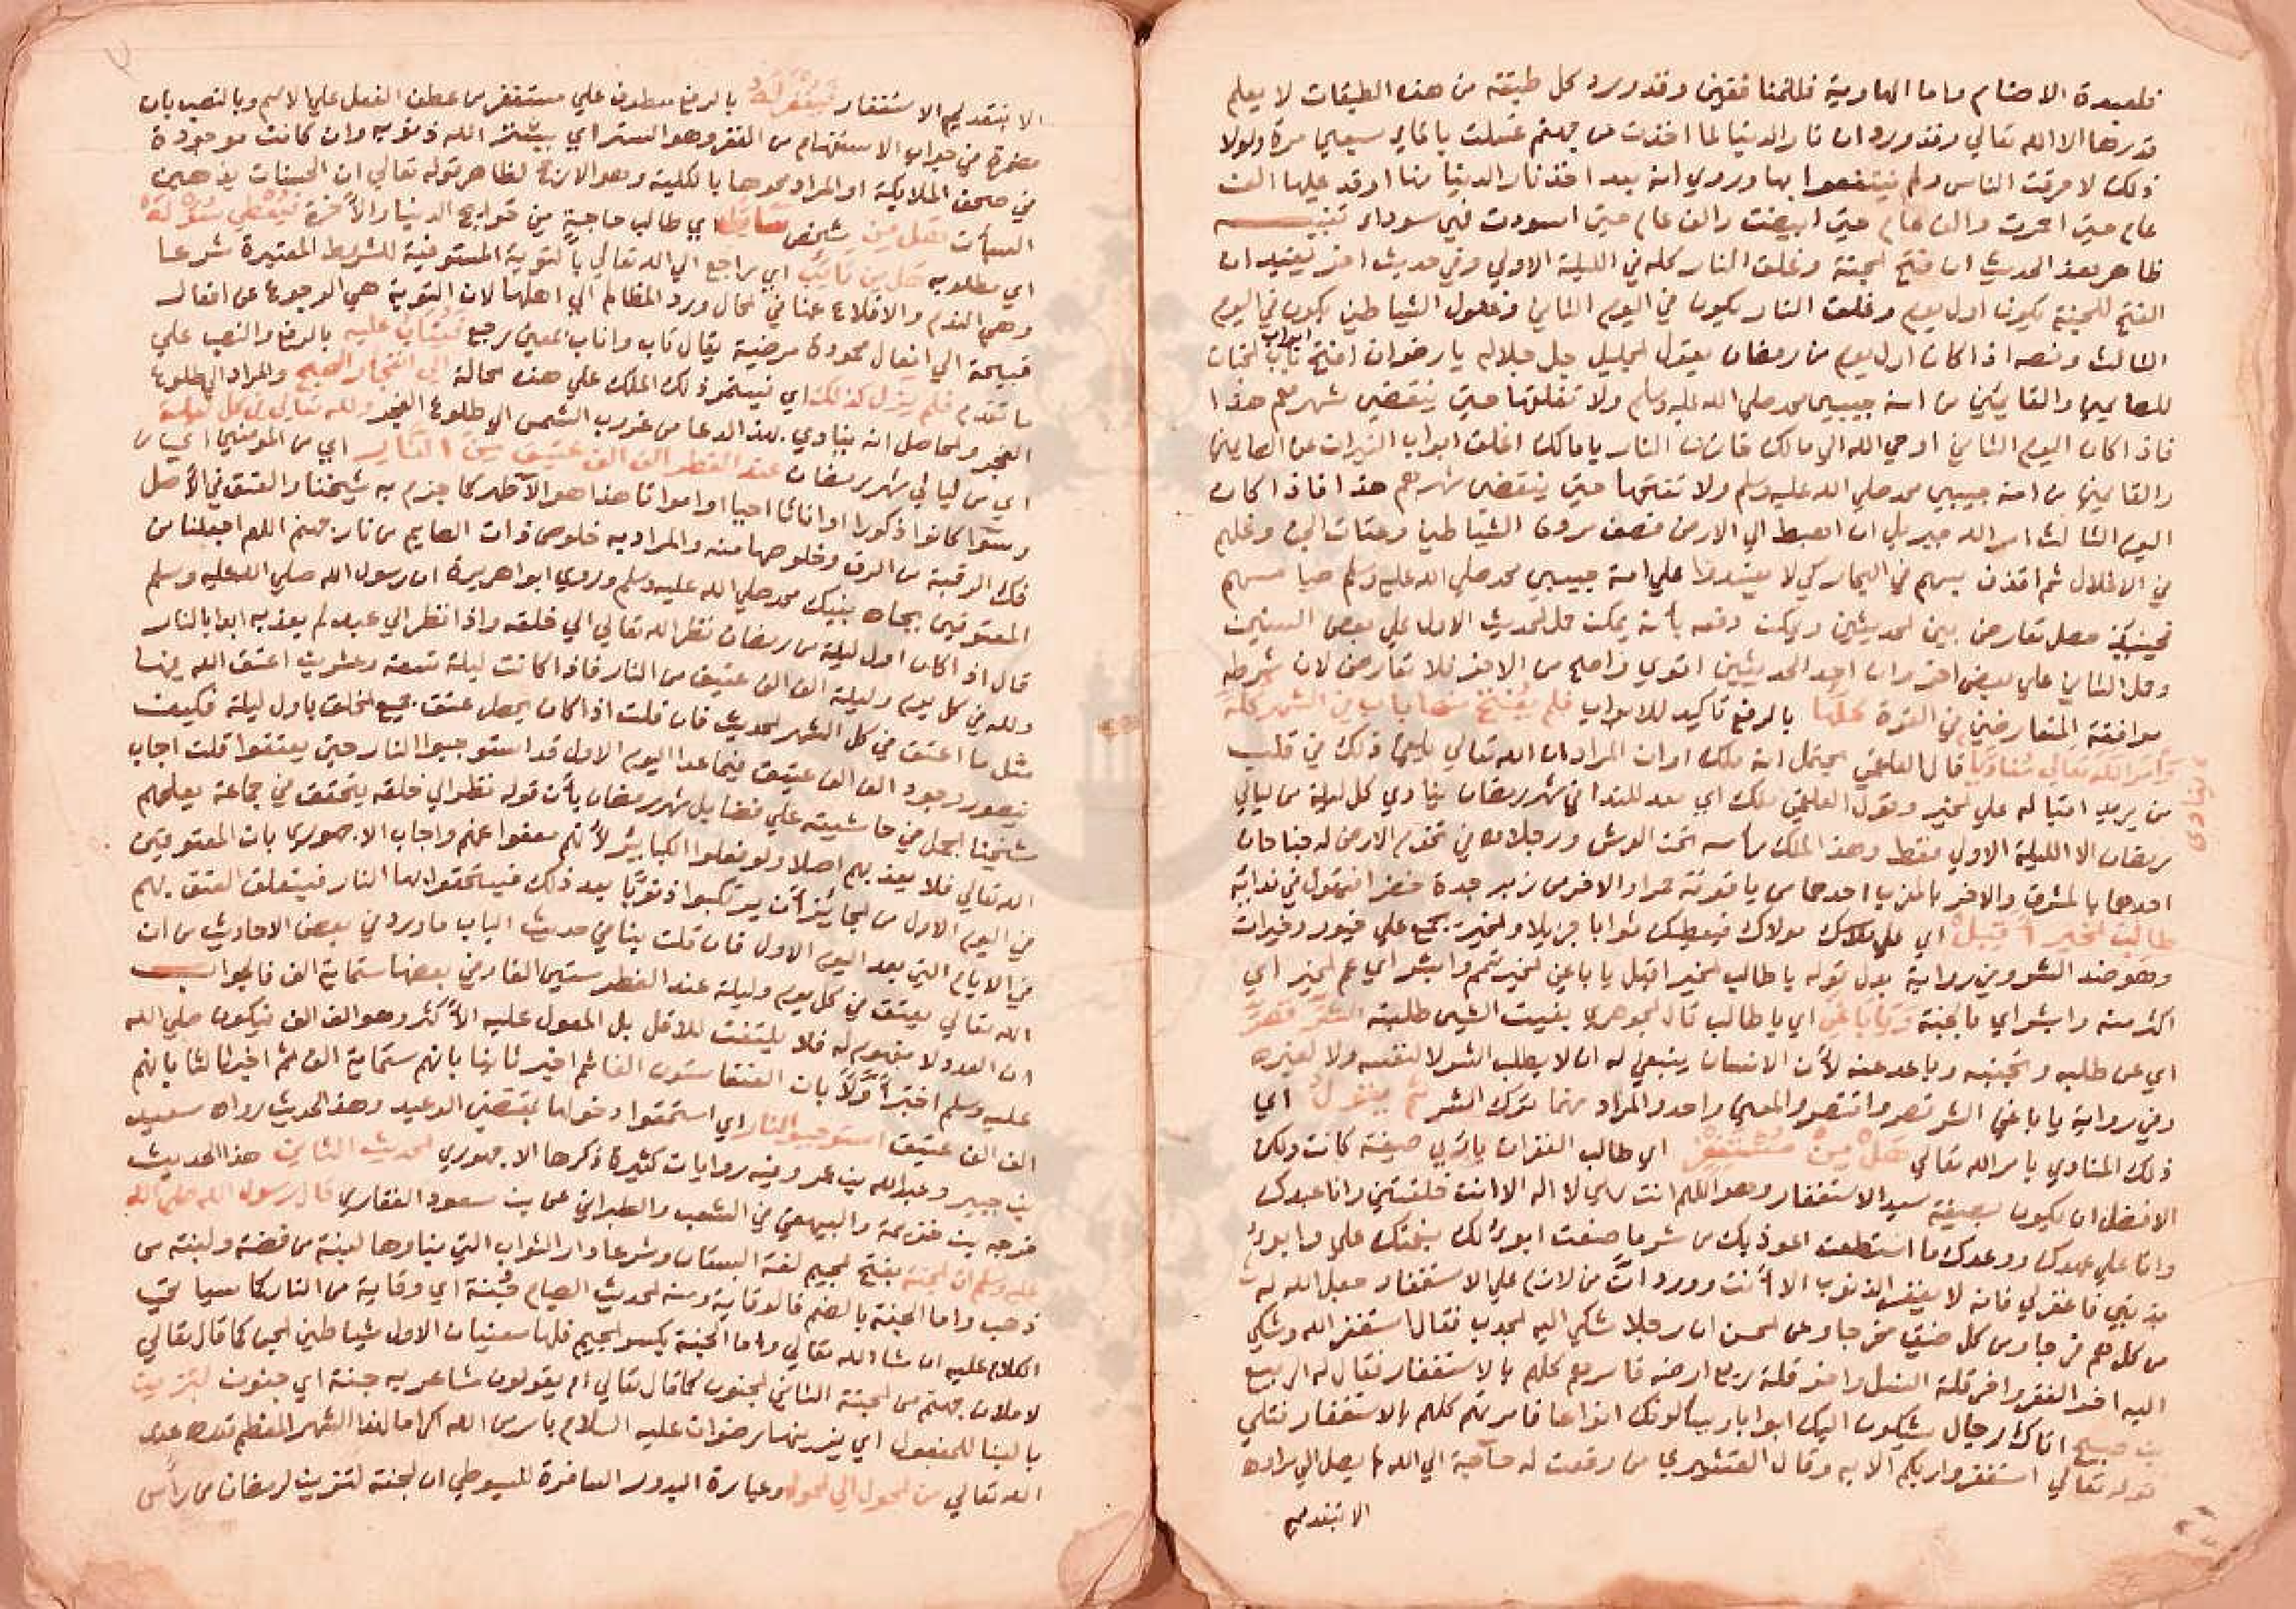 فلعبدة الاصنام واما الهاوية فللمنافقين وقد ورد كل طبقة من هذه الطبقات لا يعلم
قدرها الا الله تعالي وقد ورد ان نار الدنيا لما اخذت من جهنم غسلت بالماء سبعين مرة ولولا
ذلك لاحرقت الناس ولم ينتفعوا بها وروي انه بعد اخذ نار الدنيا منها اوقد عليها الف
عام حتي احمرت والف عام حتي ابيضت والف عام حتي اسودت فهي سوداء تنبيه
ظاهر هذا الحديث ان فتح الجنة وغلق النار كله في الليلة الاولي وفي حديث اخر يفيد ان
الفتح للجنة يكون اول يوم وغلق النار يكون في اليوم الثاني وغلول الشياطين يكون في اليوم
الثالث ونصه اذا كان اول يوم من رمضان يقول الجليل جل جلاله يا رضوان افتح ابواب الجنات
للصايمين والقايمين من امة حبيبي محمد صلي الله عليه وسلم ولا تغلقها حتي ينقضي شهرهم هذا
فاذا كان اليوم الثاني اوحي الله الي مالك خازن النار يا مالك اغلق ابواب النيران عن الصايمين
والقايمين من امة حبيبي محمد صلي الله عليه وسلم ولا تفتحها حتي ينقضي شهرهم هذا فاذا كان
اليوم الثالث امر الله جبريل ان اهبط الي الارض فصفد مردة الشياطين وعتات الجن وغلهم
في الاغلال ثم اقذف بهم في البحار كي لا يفسدوا علي امة حبيبي محمد صلي الله عليه وسلم صيامهم
فحينئذ حصل تعارض بين الحديثين ويمكن دفعه بأنه يمكن حمل الحديث الاول علي بعض السنين
وحمل الثاني علي بعض اخر وان احد الحديثين اقوي واصح من الاخر فلا تعارض لان شرطه
موافقة المتعارضين في القوة كلها بالرفع تاكيد للابواب فلم يفتح منها باب في الشهر كله
وأمر الله تعالي مناديا قال العلقمي يحتمل انه ملك او ان المراد ان الله تعالي يلهم ذلك في قلب
من يريد اقباله علي الخير وقول العلقمي ملك اي معد للندا في شهر رمضان ينادي كل ليلة من ليالي
رمضان الا الليلة الاولي فقط وهذا الملك رأسه تحت العرش ورجلاه في تخوم الارض له جناحان
احدهما بالمشرق والاخر بالمغرب احدهما من ياقوتة حمراء والاخر من زبرجدة خضرا فيقول في ندائه
طالب الخير اقبل اي علي ملك مولاك فيعطيك ثوابا جزيلا والخير يجمع علي خيور وخيرات
وهو ضد الشر وفي رواية بدل قوله يا طالب الخير اقبل يا باغي الخير هلم وابشر اي علم الخير اي
اكثر منه وابشر اي بالجنة ويا باغي اي يا طالب قال الجوهري بغيت الشيء طلبته الشر قصر
اي عن طلبه وتجنبه وباعد عنه لأن الانسان ينبغي له ان لا يطلب الشر لا لنفسه ولا لغيره
وفي رواية يا باغي الشر قصر واقتصر والمعني واحد والمراد منهما ترك الشر ثم يقول اي
ذلك المنادي بامر الله تعالي هل من مستغفر اي طالب الغفران بأي صيغة كانت ولكن
الافضل ان يكون بصيغة سيد الاستغفار وهو اللهم انت ربي لا اله الا انت خلقتني وانا عبدك
وانا علي عهدك ووعدك ما استطعت اعوذ بك من شر ما صنعت ابوء لك بنعمتك علي وابوء
بذنبي فاغفر لي فانه لا يغفر الذنوب الا أنت وورد ان من لازم علي الاستغفار جعل الله له
من كل هم فرجا ومن كل ضيق مخرجا وعن الحسن ان رجلا شكي اليه الجدب فقال استغفر الله وشكي
اليه اخر الفقر واخر قلة النسل واخر قلة ريع ارضه فامرهم كلهم بالاستغفار فقال له الربيع
بن صبيح اتاك رجال يشكون اليك ابوابا ويسألونك انواعا فامرتهم كلهم بالاستغفار فتلي
قوله تعالي استغفروا ربكم الايه وقال القشيري من وقعت له حاجة الي الله لم يصل الي مراده
الا بتقديم
الا بتقديم الاستغفار فيغفر له بالرفع معطوف علي مستغفر من عطف الفعل علي الاسم وبالنصب بان
مضمرة في جواب الاستفهام من الغفر وهو الستر اي يستر الله ذنوبه وان كانت موجودة
في صحف الملايكة او المراد محوها بالكلية وهو الارجح لظاهر قوله تعالي ان الحسنات يذهبن
السيأت هل من شخص سائل اي طالب حاجة من حوايج الدنيا والأخرة فيعطي سؤله
اي مطلوبه هل من تائب اي راجع الي الله تعالي بالتوبة المستوفية للشروط المعتبرة شرعا
وهي الندم والاقلاع عنا في الحال ورد المظالم الي اهلها لان التوبة هي الرجوع عن افعال
قبيحة الي افعال محمودة مرضية يقال تاب واناب بمعني رجع فيتاب عليه بالرفع والنصب علي
ما تقدم فلم يزل كذلك اي فيستمر ذلك الملك علي هذه الحالة الي انفجار الصبح والمراد الي طلوع
الفجر والحاصل انه ينادي بهذا الدعا من غروب الشمس الي طلوع الفجر ولله تعالي في كل ليلة
اي من ليالي شهر رمضان عند الفطر الف الف عتيق من النار اي من المومنين اي ناس
وسوا كانوا ذكورا او اناثا احيا او امواتا هذا هو الأظهر كما جزم به شيخنا والعتق في الأصل
فك الرقبة من الرق وخلوصها منه والمراد به خلوص ذات الصايم من نار جهنم اللهم اجعلنا من
المعتوقين بجاه نبيك محمد صلي الله عليه وسلم وروي ابو هريرة ان رسول الله صلي الله عليه وسلم
قال اذا كان اول ليلة من رمضان نظر الله تعالي الي خلقه واذا نظر الي عبد لم يعذبه ابدا بالنار
ولله في كل يوم وليلة الف الف عتيق من النار فاذا كانت ليلة تسعة وعشرين اعتق الله فيها
مثل ما اعتق في كل الشهر الحديث فان قلت اذا كان يحصل عتق جميع الخلق باول ليلة فكيف
يتصور وجود الف الف عتيق فيما عدا اليوم الاول قد استوجبوا النار حتي يعتقوا قلت اجاب
شيخنا الجمل في حاشيته علي فضايل شهر رمضان بأن قوله نظر الي خلقه يتحقق في جماعة يعلمهم
الله تعالي فلا يعذبهم اصلا ولو فعلوا الكبائر لأنهم معفوا عنهم واجاب الاجهوري بان المعتوقين
في اليوم الاول من الجائز أن يرتكبوا ذنوبا بعد ذلك فيستحقوا بها النار فيتعلق العتق بهم
في الايام التي بعد اليوم الاول فان قلت ينافي حديث الباب ما ورد في بعض الاحاديث من ان
الله تعالي يعتق في كل يوم وليلة عند الفطر ستين الفا وفي بعضها ستماية الف فالجواب
ان العدد لا مفهوم له فلا يلتفت للاقل بل المعول عليه الأكثر وهو الف الف فيكون صلي الله
عليه وسلم اخبر أولا بان العتقا ستون الفا ثم اخبر ثانيا بانهم ستماية الف ثم اخبر ثالثا بانهم
الف الف عتيق استوجبوا النار اي استحقوا دخولها بمقتضي الوعيد وهذا الحديث رواه سعيد
بن جبير وعبد الله بن عمر وفيه روايات كثيرة ذكرها الاجهوري الحديث الثاني هذا الحديث
خرجه بن خزيمة والبيهقي في الشعب والطبراني عن بن مسعود الغفاري قال رسول الله صلي الله
عليه وسلم ان الجنة بفتح الجيم لغة البستان وشرعا دار الثواب التي بناوها لبنة من فضة ولبنة من
ذهب واما الجنة بالضم فالوقاية ومنه الحديث الصيام جنة اي وقاية من النار كما سياتي
الكلام عليه ان شا الله تعالي واما الجنة بكسر الجيم فلها معنيان الاول شياطين الجن كما قال تعالي
لاملان جهنم من الجنة الثاني الجنون كما قال تعالي ام يقولون شاعر به جنة اي جنون لتزين
بالبنا للمفعول اي يزينها رضوان عليه السلام بامر من الله اكراما لهذا الشهر المعظم قدره عند
الله تعالي من الحول الي الحول وعبارة البدور السافرة للسيوطي ان الجنة لتتزين لرمضان من رأس